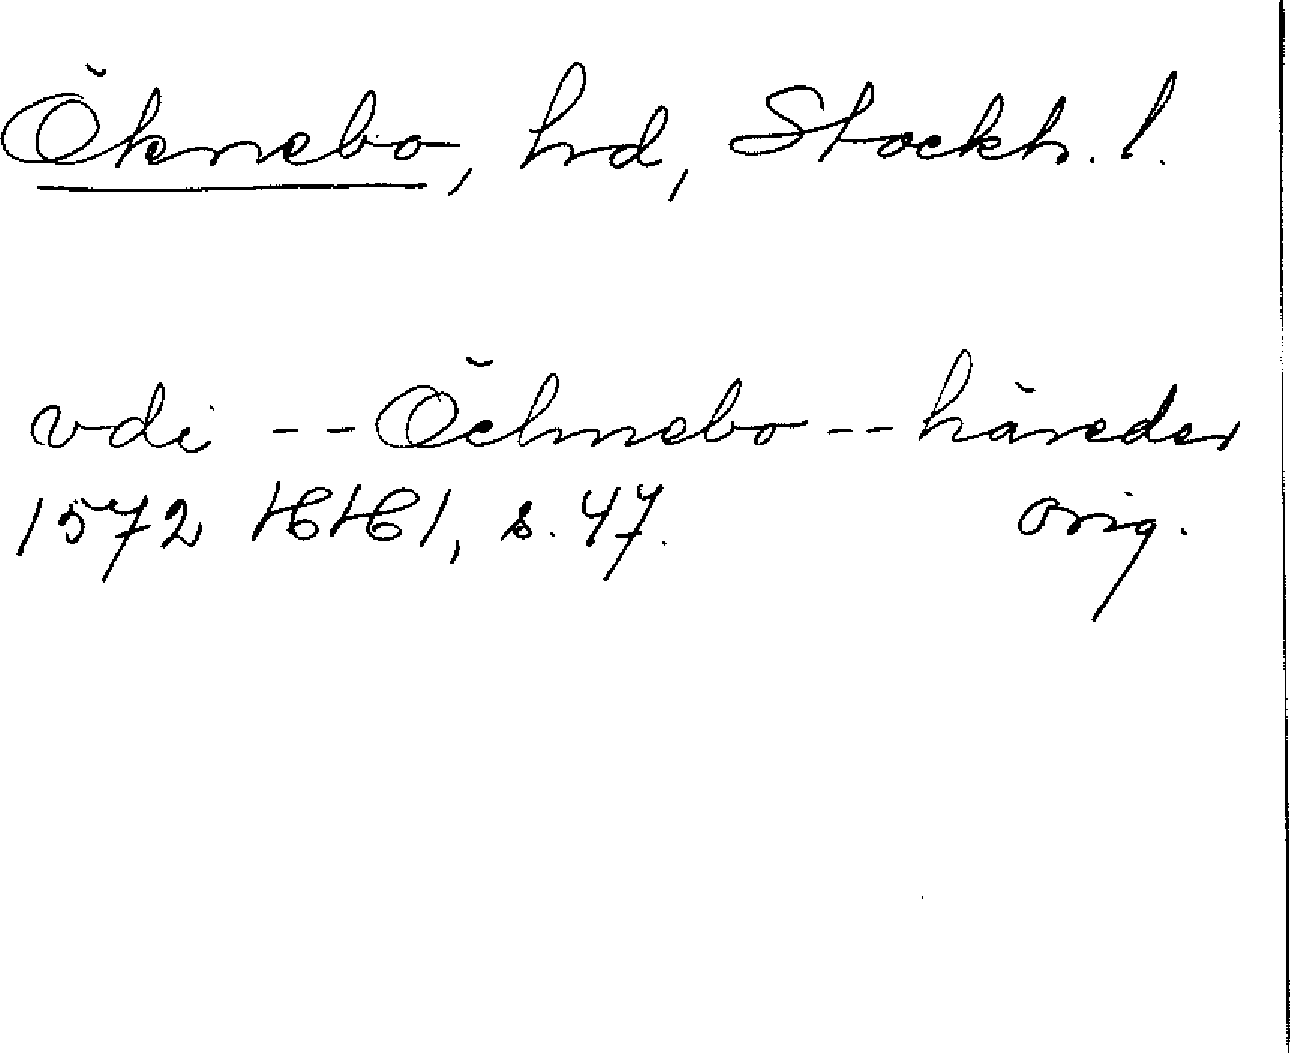 Öknebo, hrd, Stockh. l.
vdi -- Öchnebo -- häreder
1572 HH 1, s. 47. orig.